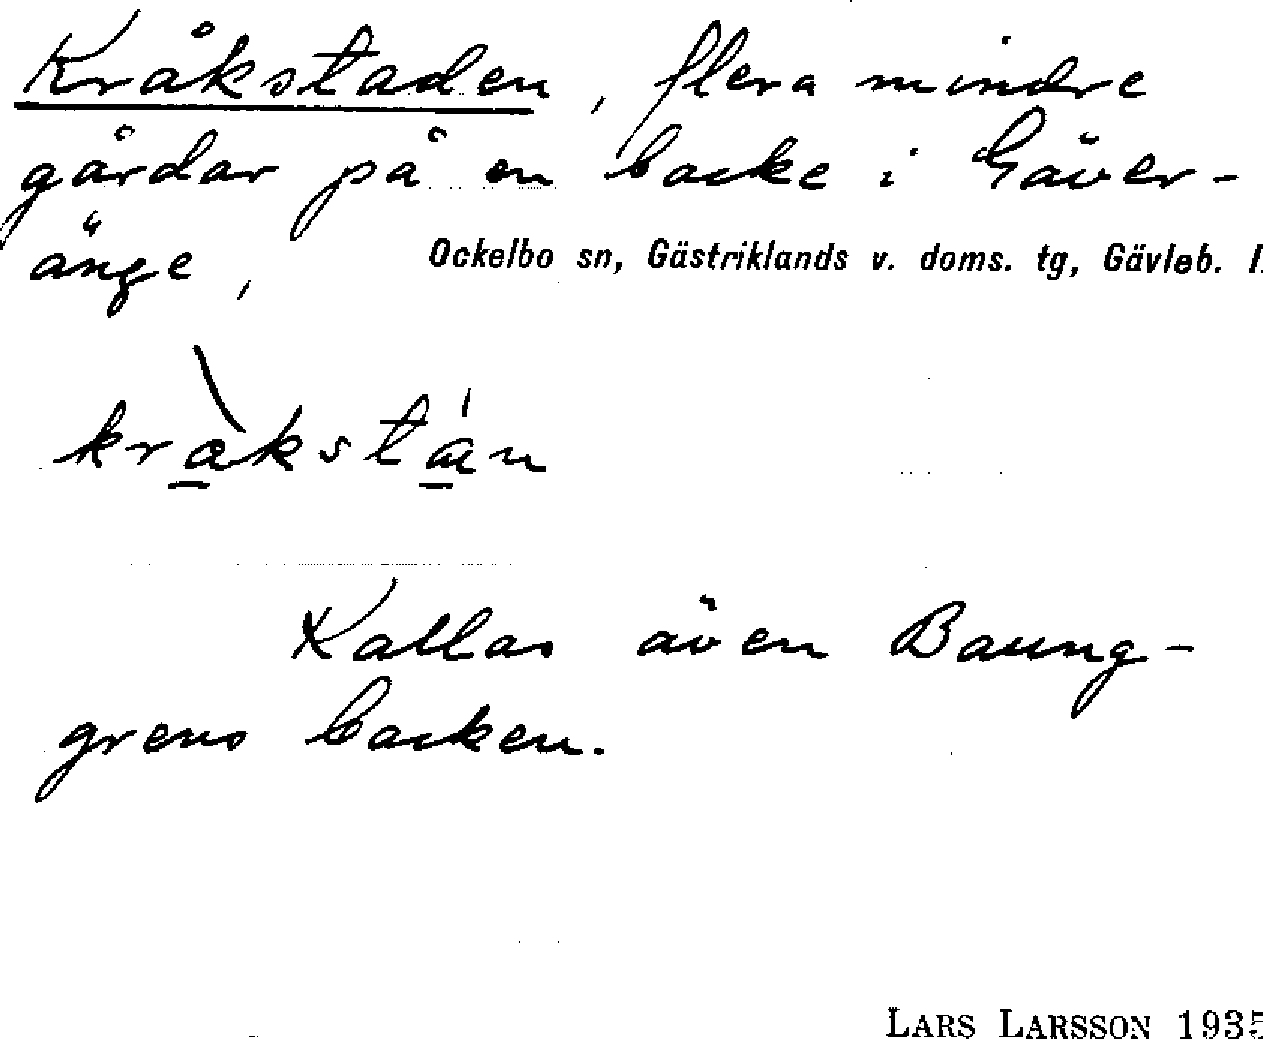 Kråkstaden, flera mindre
gårdar på en backe i Gäver-
änge,
Ockelbo sn, Gästriklands v. doms. tg, Gävleb. l.
kràkstán
Kallas även Baung-
grens backen.
LARS LARSSON 1935